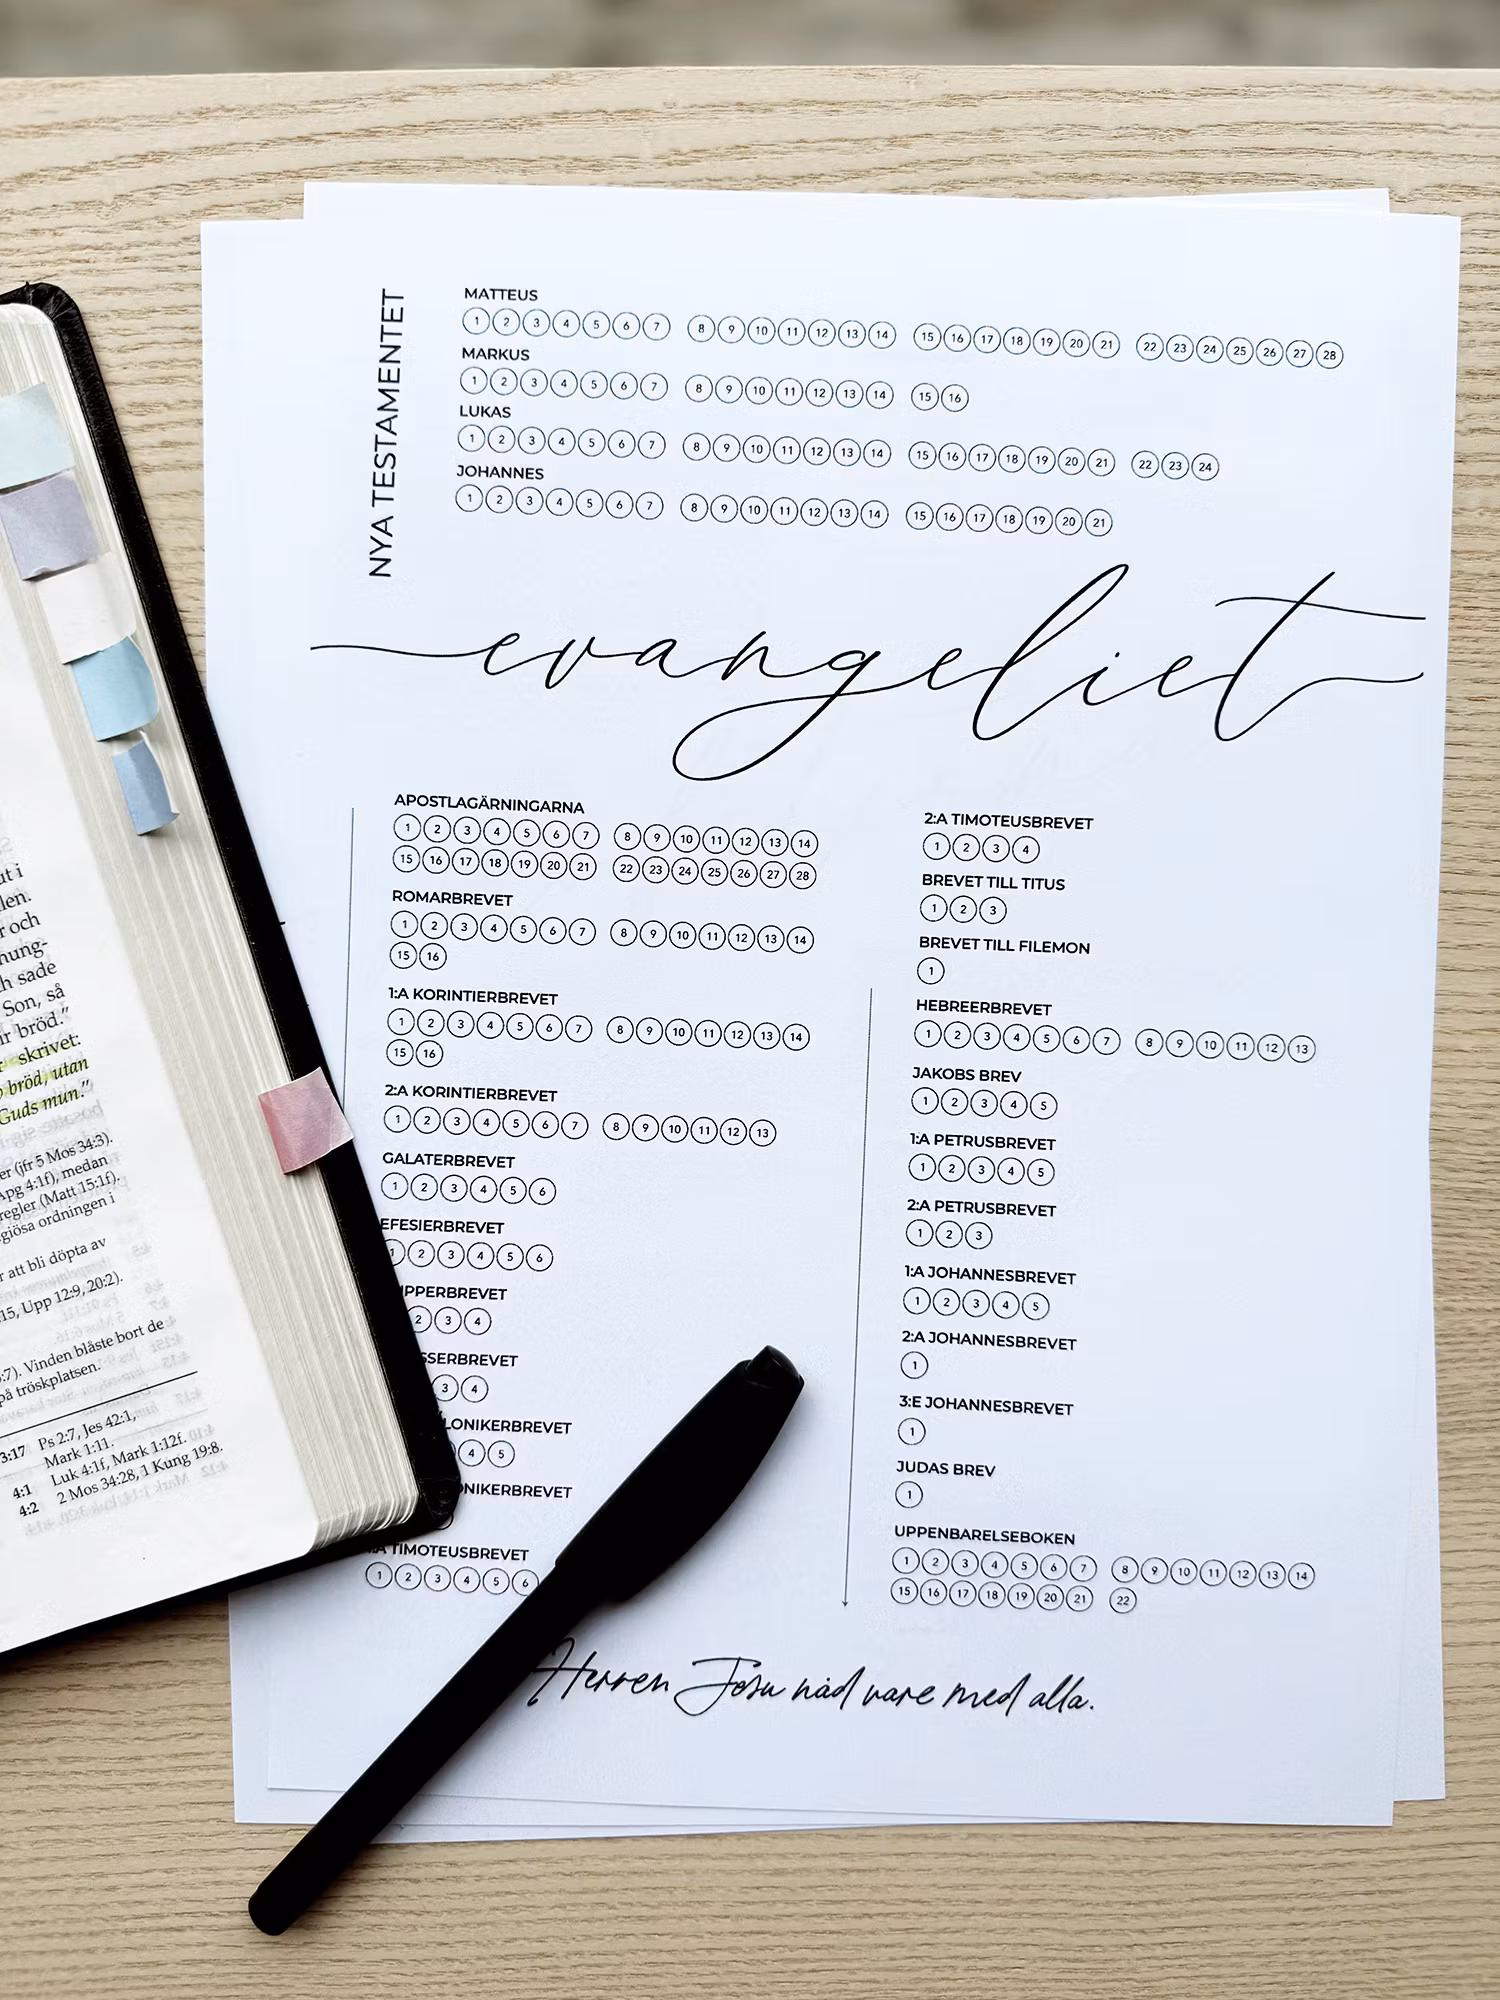 NYA TESTAMENTET
MATTEUS
1 2 3 4 5 6 7 8 9 10 11 12 13 14 15 16 17 18 19 20 21 22 23 24 25 26 27 28
MARKUS
1 2 3 4 5 6 7 8 9 10 11 12 13 14 15 16
LUKAS
1 2 3 4 5 6 7 8 9 10 11 12 13 14 15 16 17 18 19 20 21 22 23 24
JOHANNES
1 2 3 4 5 6 7 8 9 10 11 12 13 14 15 16 17 18 19 20 21
evangeliet
APOSTLAGÄRNINGARNA
1 2 3 4 5 6 7 8 9 10 11 12 13 14
15 16 17 18 19 20 21 22 23 24 25 26 27 28
ROMARBREVET
1 2 3 4 5 6 7 8 9 10 11 12 13 14
15 16
1:A KORINTIERBREVET
1 2 3 4 5 6 7 8 9 10 11 12 13 14
15 16
2:A KORINTIERBREVET
1 2 3 4 5 6 7 8 9 10 11 12 13
GALATERBREVET
1 2 3 4 5 6
EFESIERBREVET
1 2 3 4 5 6
IPPERBREVET
2 3 4
SSERBREVET
3 4
LONIKERBREVET
4 5
ONIKERBREVET
:A TIMOTEUSBREVET
1 2 3 4 5 6
2:A TIMOTEUSBREVET
1 2 3 4
BREVET TILL TITUS
1 2 3
BREVET TILL FILEMON
1
HEBREERBREVET
1 2 3 4 5 6 7 8 9 10 11 12 13
JAKOBS BREV
1 2 3 4 5
1:A PETRUSBREVET
1 2 3 4 5
2:A PETRUSBREVET
1 2 3
1:A JOHANNESBREVET
1 2 3 4 5
2:A JOHANNESBREVET
1
3:E JOHANNESBREVET
1
JUDAS BREV
1
UPPENBARELSEBOKEN
1 2 3 4 5 6 7 8 9 10 11 12 13 14
15 16 17 18 19 20 21 22
Herren Jesu nåd vare med alla.
ut i
len.
r och
hung-
h sade
Son, så
ir bröd."
skrivet:
bröd, utan
Guds mun."
er (jfr 5 Mos 34:3).
Apg 4:1f), medan
regler (Matt 15:1f).
giösa ordningen i
r att bli döpta av
15, Upp 12:9, 20:2).
:7). Vinden blåste bort de
på tröskplatsen.
3:17 Ps 2:7, Jes 42:1,
Mark 1:11.
4:1 Luk 4:1f, Mark 1:12f.
4:2 2 Mos 34:28, 1 Kung 19:8.